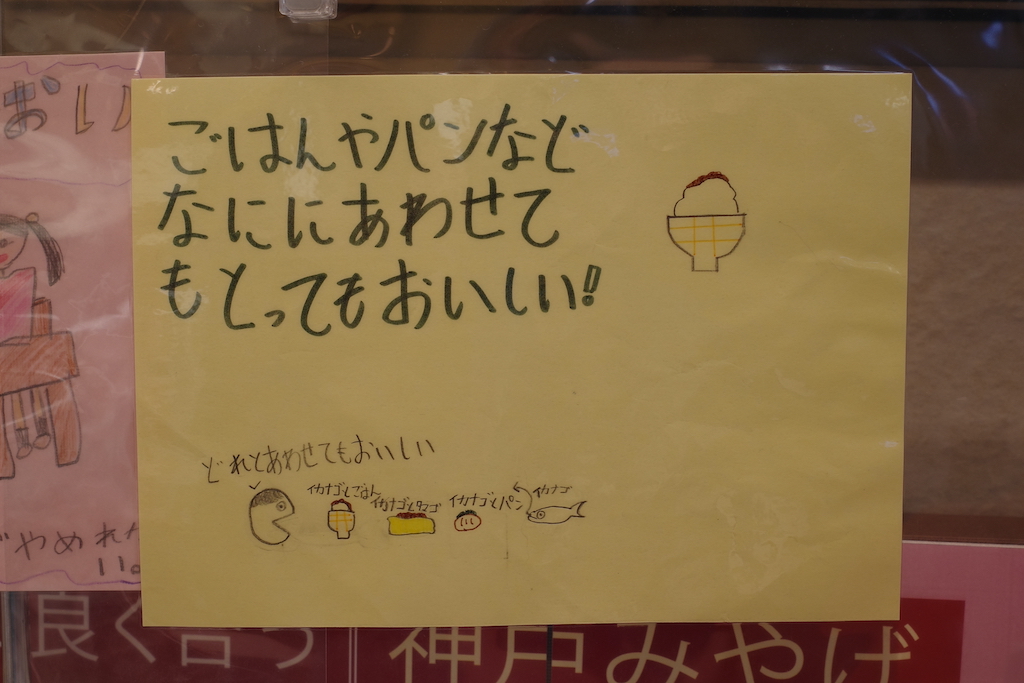 おい
ごはんやパンなど
なににあわせて
もとってもおいしい!!
どれとあわせてもおいしい
イカナゴとごはん
イカナゴとタマゴ
イカナゴとパン
イカナゴ
やめれ
い。
良く合う
神戸みやげ